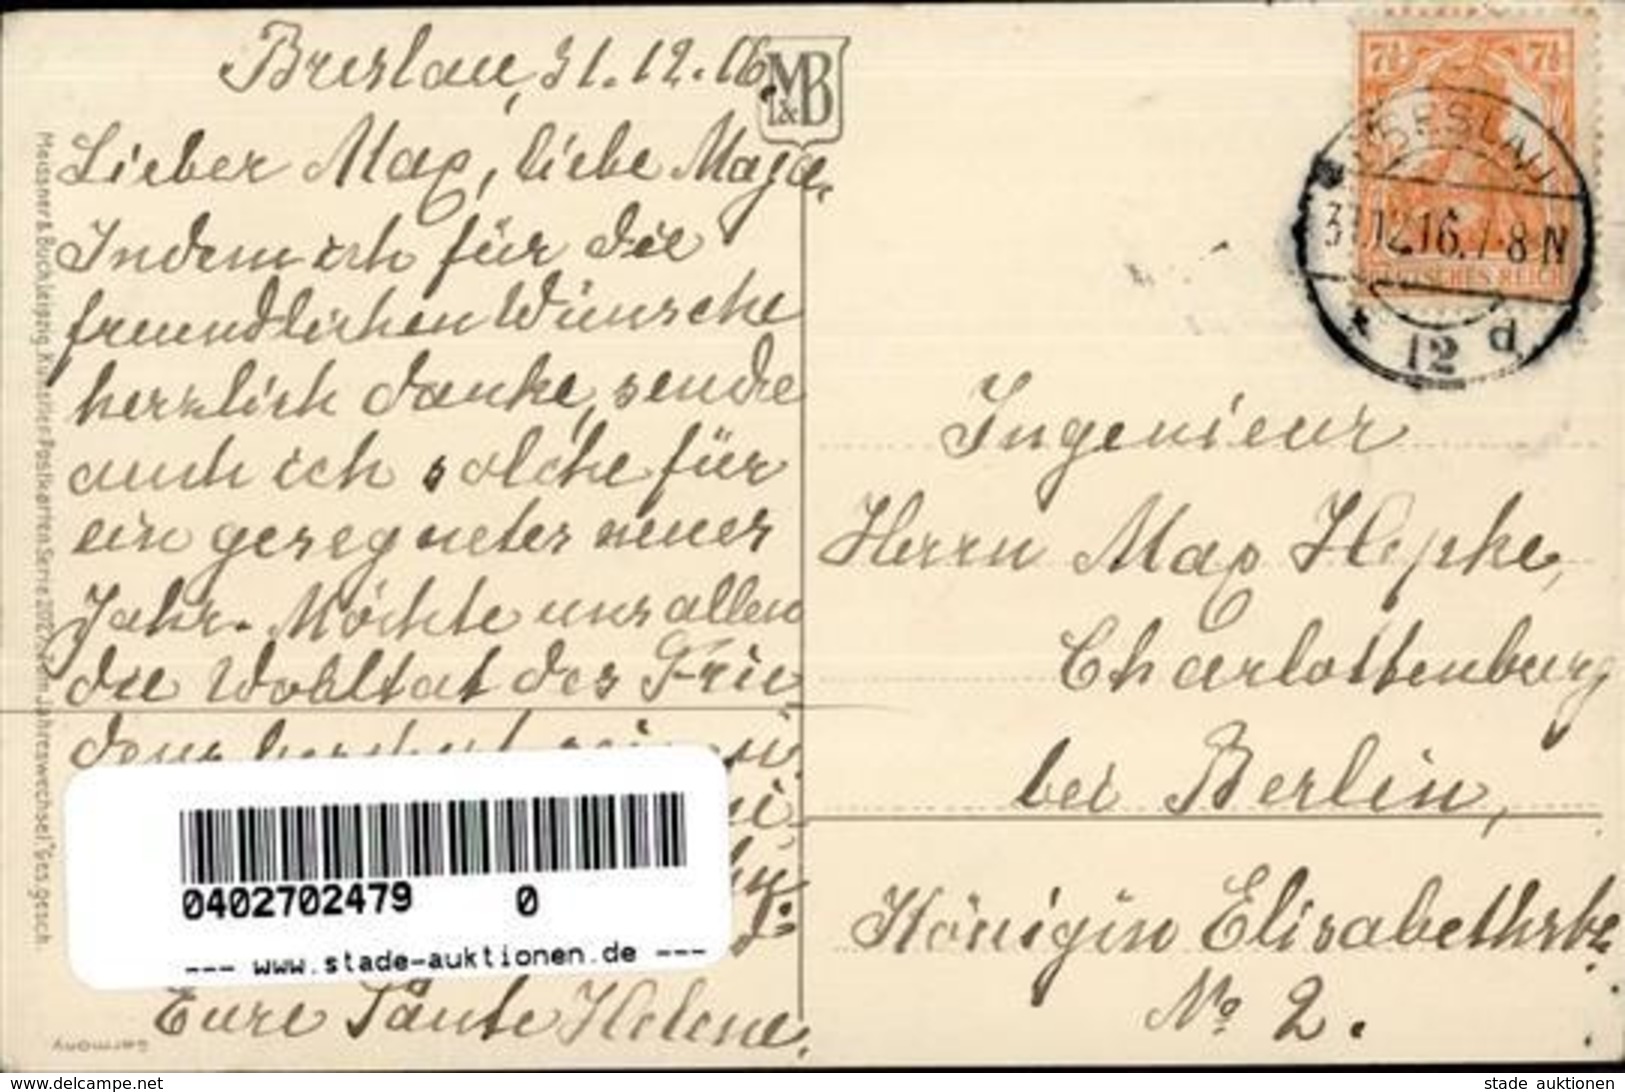 Breslau, 31.12.16.
M&B
Lieber Max, liebe Maga.
Indem ich für die
freundlichen Wünsche
herzlich danke, sende
auch ich solche für
ein gesegnetes neues
Jahr. Möchte uns allen
die Wohltat des Frie
dens
Eure Tante Helene.
Meissner & Buch Leipzig. Künstler-Postkarten Serie "Zum Jahreswechsel" Ges. gesch.
Germany
0402702479 0
--- www.stade-auktionen.de ---
7½ 7½
DEUTSCHES REICH
BRESLAU
31.12.16.7-8N
* 12 d
Ingenieur
Herrn Max Hepke,
Charlottenburg
bei Berlin,
Königin Elisabethstr.
No 2.
www.delcampe.net
stade auktionen